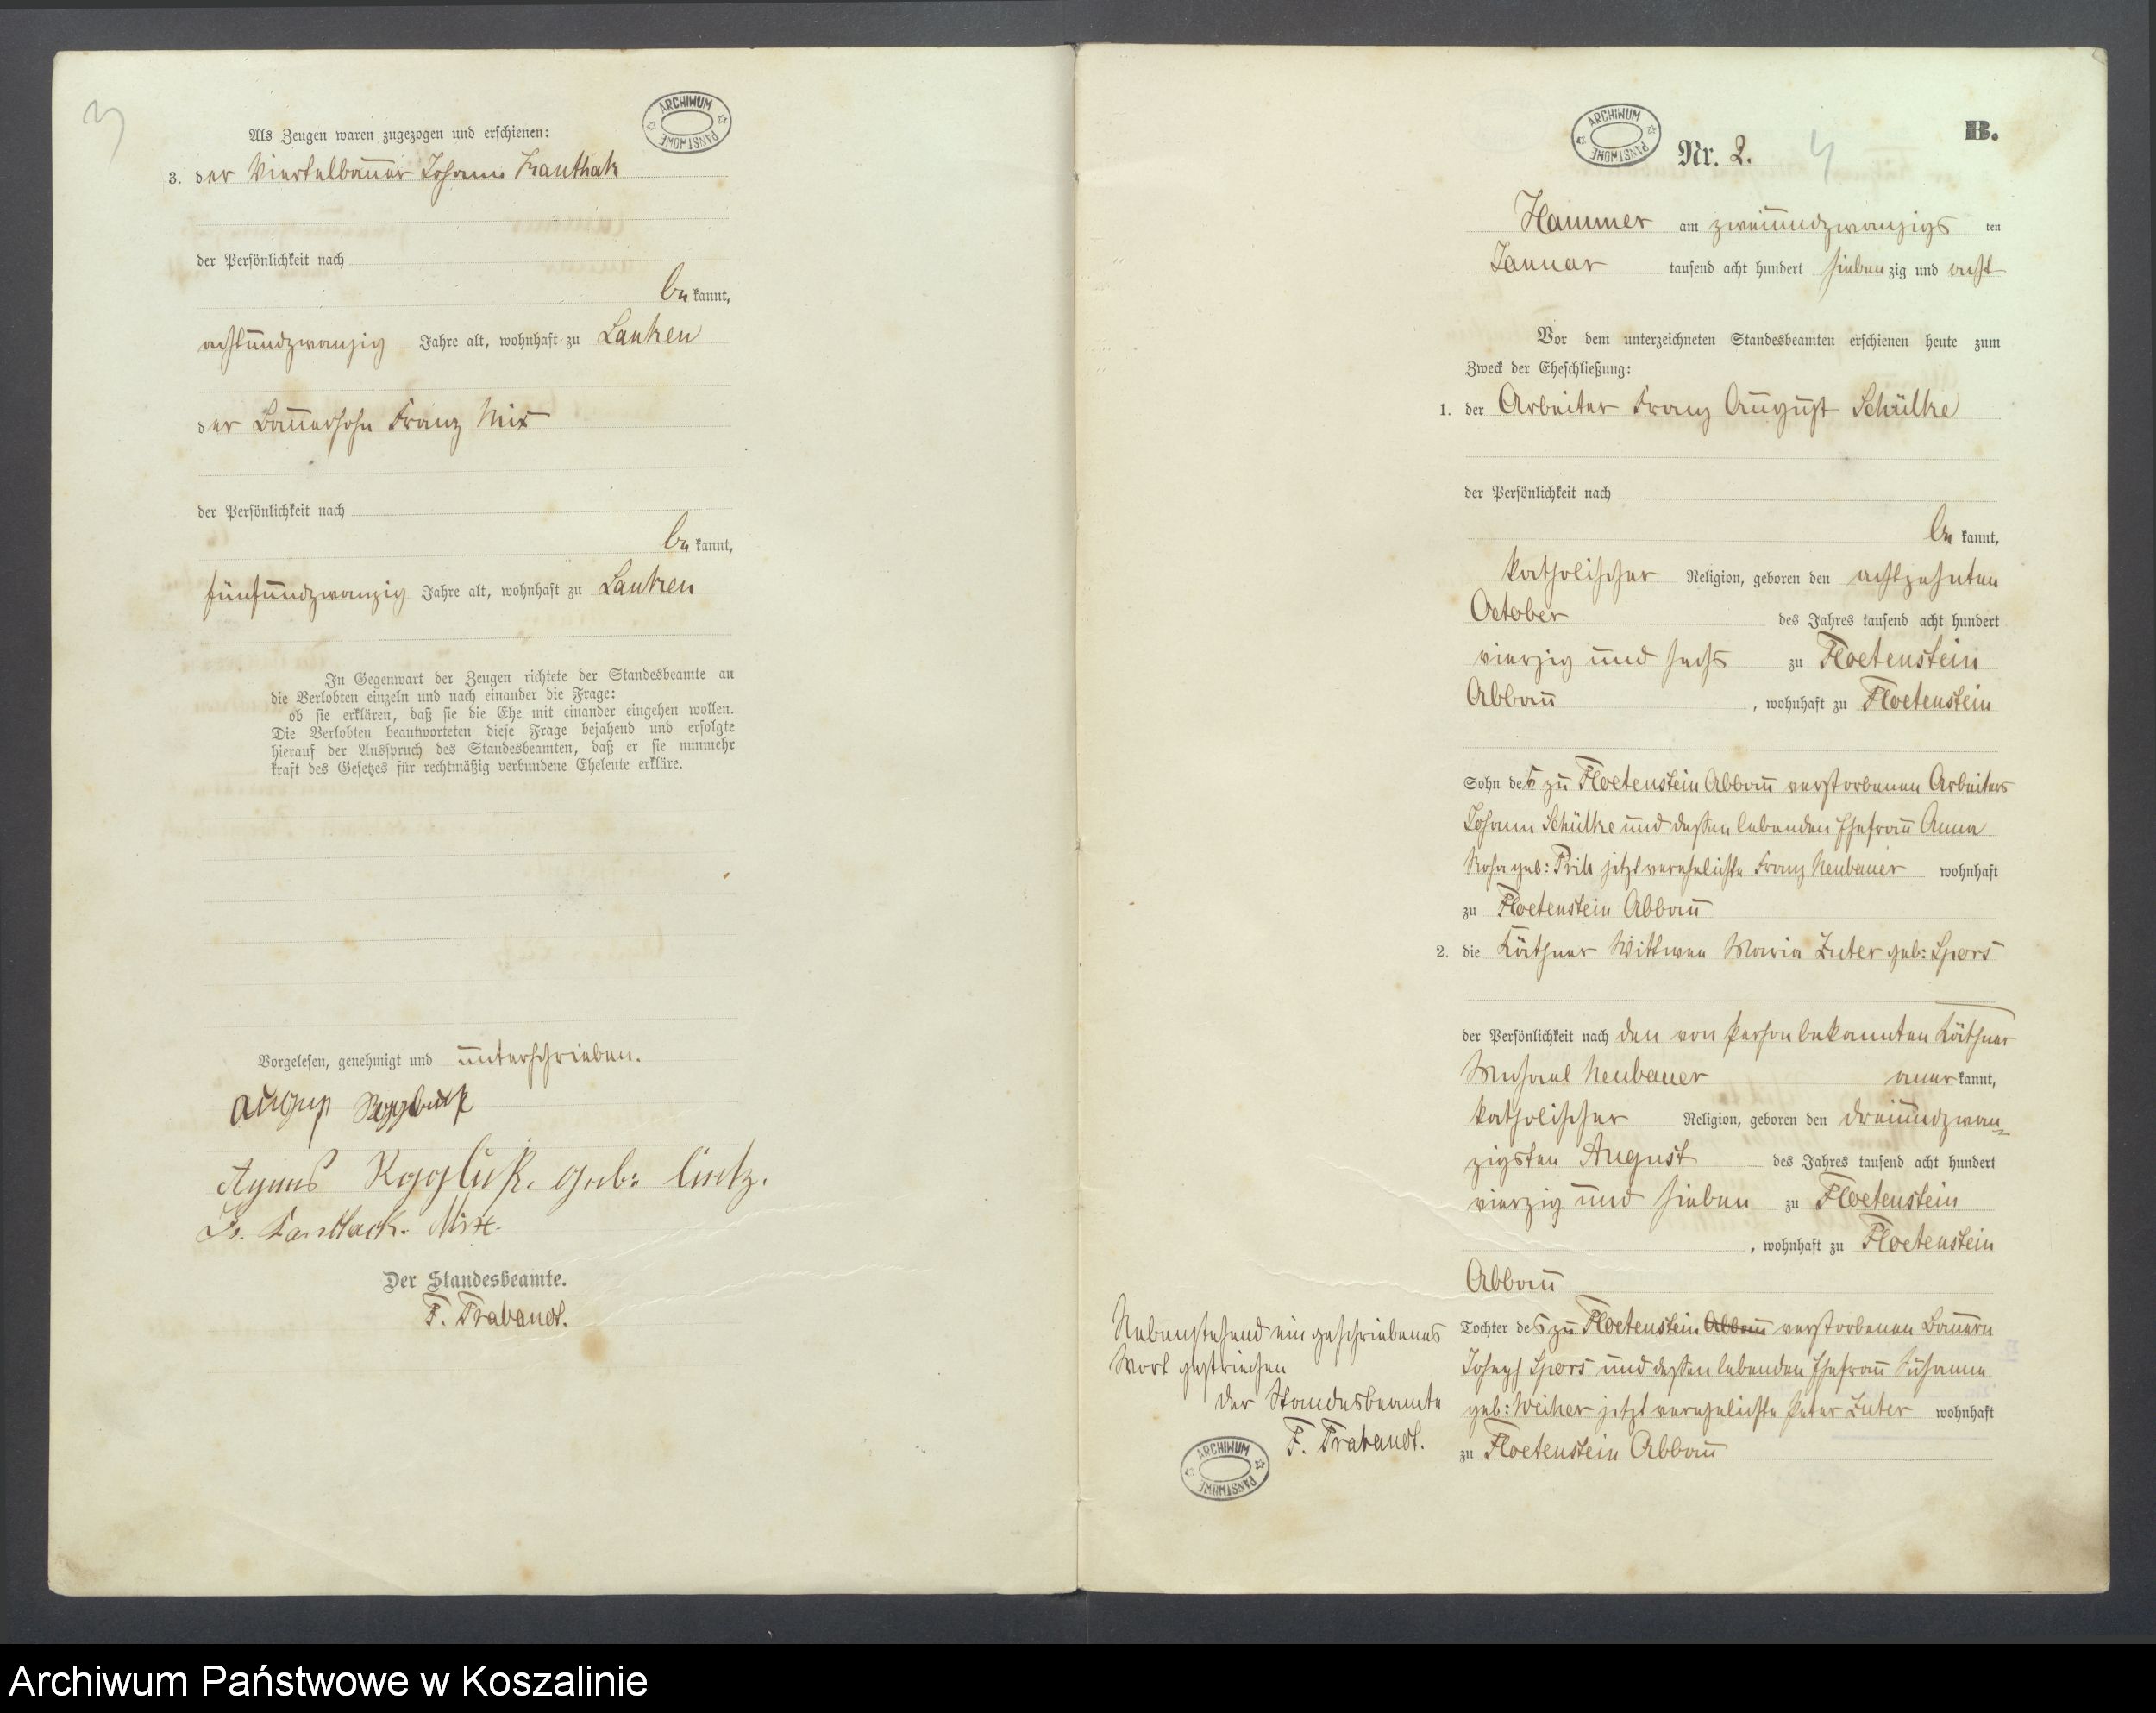 3
ARCHIWUM PAŃSTWOWE
Als Zeugen waren zugezogen und erschienen:
3. der Viertelbauer Johann
der Persönlichkeit nach
be kannt,
achtundzwanzig Jahre alt, wohnhaft zu Lanken
der Bauersohn Franz Mix
der Persönlichkeit nach
be kannt,
fünfundzwanzig Jahre alt, wohnhaft zu Lanken
In Gegenwart der Zeugen richtete der Standesbeamte an
die Verlobten einzeln und nach einander die Frage:
ob sie erklären, daß sie die Ehe mit einander eingehen wollen.
Die Verlobten beantworteten diese Frage bejahend und erfolgte
hierauf der Ausspruch des Standesbeamten, daß er sie nunmehr
kraft des Gesetzes für rechtmäßig verbundene Eheleute erkläre.
Vorgelesen, genehmigt und unterschrieben.
August
Agnes geb:
Mix.
Der Standesbeamte.
F. Trabandt.
B.
ARCHIWUM PAŃSTWOWE
Nr. 2.
4
Hammer am zweiundzwanzigs ten
Januar tausend acht hundert sieben zig und acht
Vor dem unterzeichneten Standesbeamten erschienen heute zum
Zweck der Eheschließung:
1. der Arbeiter Franz August Schülke
der Persönlichkeit nach
be kannt,
katholischer Religion, geboren den achtzehnten
October des Jahres tausend acht hundert
vierzig und sechs zu Floetenstein
Abbau , wohnhaft zu Floetenstein
Sohn des zu Floetenstein Abbau verstorbenen Arbeiters
Johann Schülke und dessen lebenden Ehefrau Anna
Rosa geb: jetzt verehelichte Franz Neubauer wohnhaft
zu Floetenstein Abbau
2. die Käthner Wittwe Maria geb: Spors
der Persönlichkeit nach den von Person bekannten Käthner
Michael Neubauer aner kannt,
katholischer Religion, geboren den dreiundzwan-
zigsten August des Jahres tausend acht hundert
vierzig und sieben zu Floetenstein
, wohnhaft zu Floetenstein
Abbau
Tochter des zu Floetenstein Abbau verstorbenen Bauern
Joseph Spors und dessen lebenden Ehefrau Susanna
geb: Weiher jetzt verehelichte Peter wohnhaft
zu Floetenstein Abbau
Nebenstehend ein geschriebenes
Wort gestrichen
Der Standesbeamte
F. Trabandt.
ARCHIWUM PAŃSTWOWE
Archiwum Państwowe w Koszalinie